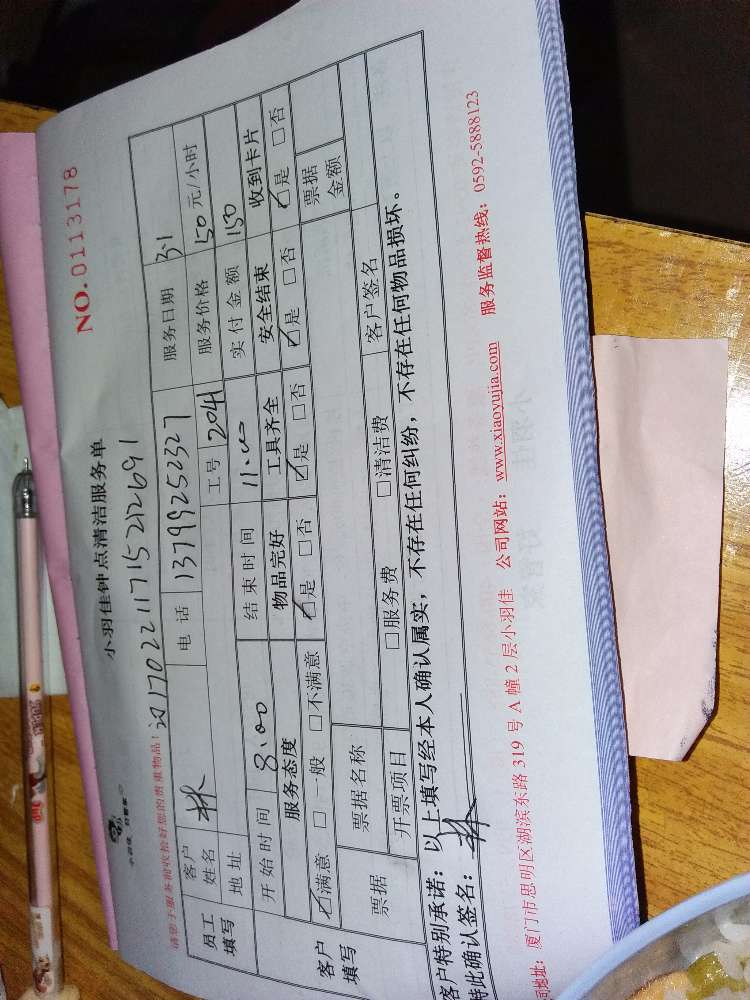 小羽佳钟点清洁服务单
NO.0113178
请您于服务前收拾好您的贵重物品! 1702211715212691
员工填写 客户姓名 林 电话 13799252327 服务日期 3.1
地址 工号 2041 服务价格 50元/小时
开始时间 8:00 结束时间 11:00 实付金额 150
客户填写 服务态度 物品完好 工具齐全 安全结束 收到卡片
☑满意 □一般 □不满意 ☑是 □否 ☑是 □否 ☑是 □否 ☑是 □否
票据 票据名称 票据金额
开票项目 □服务费 □清洁费 客户签名
客户特别承诺：以上填写经本人确认属实，不存在任何纠纷，不存在任何物品损坏。
特此确认签名：林
司地址：厦门市思明区湖滨东路319号A幢2层小羽佳 公司网站：www.xiaoyujia.com 服务监督热线：0592-5888123